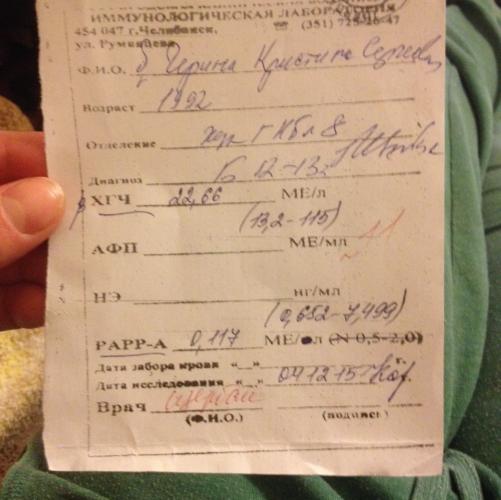 ИММУНОЛОГИЧЕСКАЯ ЛАБОРАТОРИЯ
454 047 г.Челябинск, (351) 725-46-47
ул. Румянцева
Ф.И.О. Кристина
Возраст 1992
Отделение ГКБ № 8
Диагноз Б 12-13
ХГЧ 22,66 МЕ/л
(13,2-115)
АФП МЕ/мл
НЭ нг/мл
(0,652-7,499)
PAPP-A 0,117 МЕ/л (N 0,5-2,0)
Дата забора крови «__» г.
Дата исследования «__» 04 12 15 г.
Врач
(Ф.И.О.) (подпись)